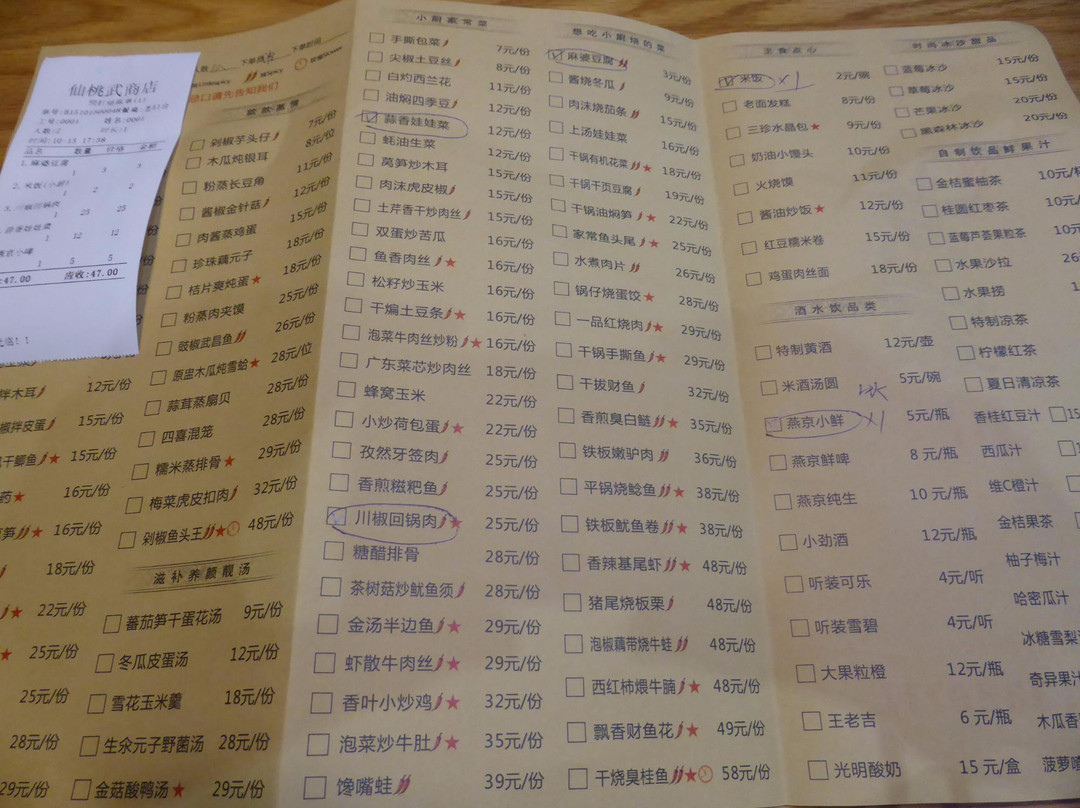 仙桃武商店
工号:0001
人数:2
时间:10-15 17:38
品名 数量 价格 金额
1.麻婆豆腐
1 3 3
2.米饭(小碗)
1 2 2
1 25 25
1 12 12
1 5 5
:47.00 应收:47.00
下单时间
口请先告知我们
剁椒芋头仔 7元/份
木瓜炖银耳 8元/位
粉蒸长豆角 11元/份
酱椒金针菇 12元/份
肉酱蒸鸡蛋 15元/份
珍珠藕元子 18元/份
桔片爽炖蛋★ 18元/份
粉蒸肉夹馍 25元/份
豉椒武昌鱼 26元/份
原盅木瓜炖雪蛤★ 28元/位
蒜茸蒸扇贝 28元/份
四喜混笼 29元/份
糯米蒸排骨★ 29元/份
梅菜虎皮扣肉 32元/份
剁椒鱼头王★ 48元/份
滋补养颜靓汤
蕃茄笋干蛋花汤 9元/份
冬瓜皮蛋汤 12元/份
雪花玉米羹 18元/份
生汆元子野菌汤 28元/份
金菇酸鸭汤★ 29元/份
拌木耳 12元/份
椒拌皮蛋 15元/份
干鲫鱼★ 15元/份
药★ 16元/份
笋★ 16元/份
18元/份
★ 22元/份
★ 25元/份
25元/份
28元/份
29元/份
小厨家常菜
手撕包菜 7元/份
尖椒土豆丝 8元/份
白灼西兰花 11元/份
油焖四季豆 12元/份
蒜香娃娃菜 12元/份
蚝油生菜 12元/份
莴笋炒木耳 15元/份
肉沫虎皮椒 15元/份
土芹香干炒肉丝 15元/份
双蛋炒苦瓜 16元/份
鱼香肉丝★ 16元/份
松籽炒玉米 16元/份
干煸土豆条★ 16元/份
泡菜牛肉丝炒粉★ 16元/份
广东菜芯炒肉丝 18元/份
蜂窝玉米 22元/份
小炒荷包蛋★ 22元/份
孜然牙签肉 25元/份
香煎糍粑鱼 25元/份
川椒回锅肉★ 25元/份
糖醋排骨 28元/份
茶树菇炒鱿鱼须 28元/份
金汤半边鱼★ 29元/份
虾散牛肉丝★ 29元/份
香叶小炒鸡★ 32元/份
泡菜炒牛肚★ 35元/份
馋嘴蛙 39元/份
想吃小厨烧的菜
麻婆豆腐 3元/份
酱烧冬瓜 9元/份
肉沫烧茄条 15元/份
上汤娃娃菜 16元/份
干锅有机花菜★ 18元/份
干锅千页豆腐 19元/份
干锅油焖笋★ 22元/份
家常鱼头尾★ 25元/份
水煮肉片 26元/份
锅仔烧蛋饺★ 28元/份
一品红烧肉★ 29元/份
干锅手撕鱼★ 29元/份
干拔财鱼 32元/份
香煎臭白鲢★ 35元/份
铁板嫩驴肉 36元/份
平锅烧鲶鱼★ 38元/份
铁板鱿鱼卷★ 38元/份
香辣基尾虾★ 48元/份
猪尾烧板栗 48元/份
泡椒藕带烧牛蛙 48元/份
西红柿煨牛腩★ 48元/份
飘香财鱼花★ 49元/份
干烧臭桂鱼★ 58元/份
主食点心
米饭 x1 2元/碗
老面发糕 8元/份
三珍水晶包★ 9元/份
奶油小馒头 10元/份
火烧馍 11元/份
酱油炒饭★ 12元/份
红豆糯米卷 15元/份
鸡蛋肉丝面 18元/份
酒水饮品类
特制黄酒 12元/壶
米酒汤圆 5元/碗
冰
燕京小鲜 x1 5元/瓶
燕京鲜啤 8元/瓶
燕京纯生 10元/瓶
小劲酒 12元/瓶
听装可乐 4元/听
听装雪碧 4元/听
大果粒橙 12元/瓶
王老吉 6元/瓶
光明酸奶 15元/盒
时尚冰沙甜品
蓝莓冰沙 15元/份
草莓冰沙 15元/份
芒果冰沙 20元/份
黑森林冰沙 20元/份
自制饮品鲜果汁
金桔蜜柚茶 10元/
桂圆红枣茶 10元/
蓝莓芦荟果粒茶 10元
水果沙拉 26
水果捞
特制凉茶
柠檬红茶
夏日清凉茶
香桂红豆汁 15
西瓜汁
维C橙汁
金桔果茶
柚子梅汁
哈密瓜汁
冰糖雪梨
奇异果汁
木瓜香
菠萝